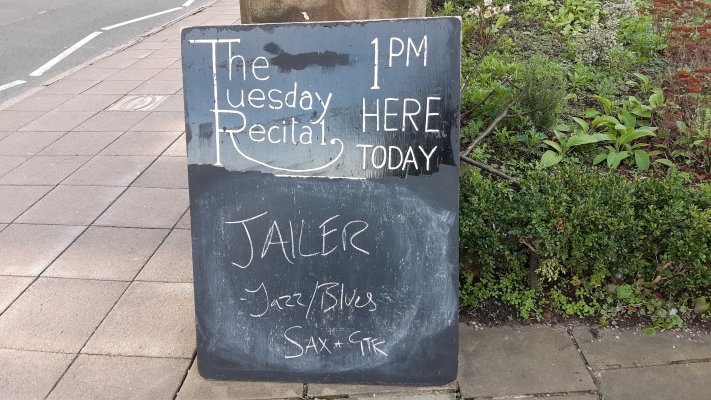 The
Tuesday
Recital
1PM
HERE
TODAY
JAILER
- Jazz/Blues
SAX + GTR